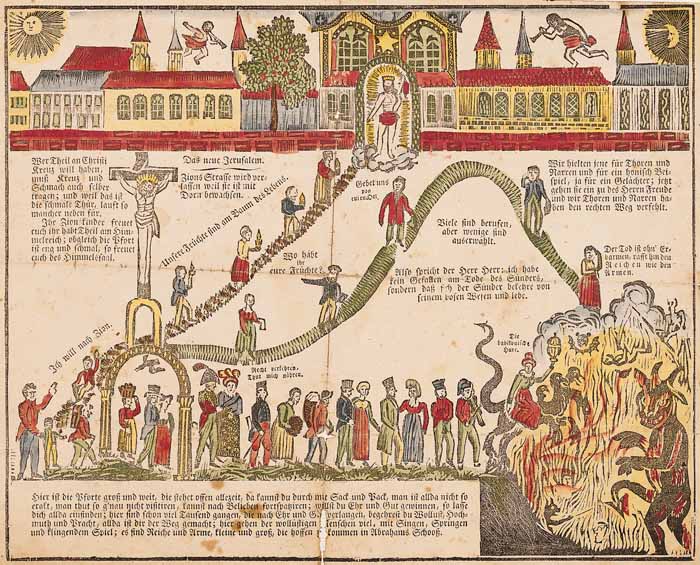 Wer Theil an Christi
Kreuz will haben,
muß Kreuz und
Schmach auch selber
tragen; und weil das ist
die schmale Thür, lauft so
mancher neben für.
Ihr Zion kinder freuet
euch ihr habt Theil am Him-
melreich; obgleich die Pfort
ist eng und schmal, so freuet
euch des Himmelsaal.
Das neue Jerusalem.
Zions Strasse wird ver-
lassen weil sie ist mit
Dorn bewachsen.
Unsere Früchte sind am Baum des Lebens.
Gehet uns
von
einander
Wo habt
ihr
eure Früchte?
Viele sind berufen,
aber wenige sind
auserwählt.
Wir hielten jene für Thoren und
Narren und für ein hönisch Bei-
spiel, ja für ein Gelächter; jetzt
gehen sie ein zu des Herrn Freude
und wir Thoren und Narren ha-
ben den rechten Weg verfehlt.
Also spricht der Herr Herr: ich habe
kein Gefallen am Tode des Sünders,
sondern daß sich der Sünder bekehre von
seinem bösen Wesen und lebe.
Der Tod ist ohn' Er-
barmen; rafft hin den
Reichen wie den
Armen.
Ich will nach Zion.
Recht verkehren,
Thut mich nähren.
Die
babilonische
Hure.
Hier ist die Pforte groß und weit, die stehet offen allezeit, da kannst du durch mit Sack und Pack, man ist allda nicht so
exakt, man thut so g'nau nicht visitiren, kannst nach Belieben fortspatziren; willst du Ehr und Gut gewinnen, so lasse
dich allda einfinden; hier sind schon viel Tausend gangen, die nach Ehr und Gut verlangen, begehrst du Wollust, Hoch-
muth und Pracht, allda ist dir der Weg gemacht; hier gehen der wollüstigen Menschen viel, mit Singen, Springen
und klingendem Spiel; es sind Reiche und Arme, kleine und groß, die hoffen zu kommen in Abrahams Schooß.